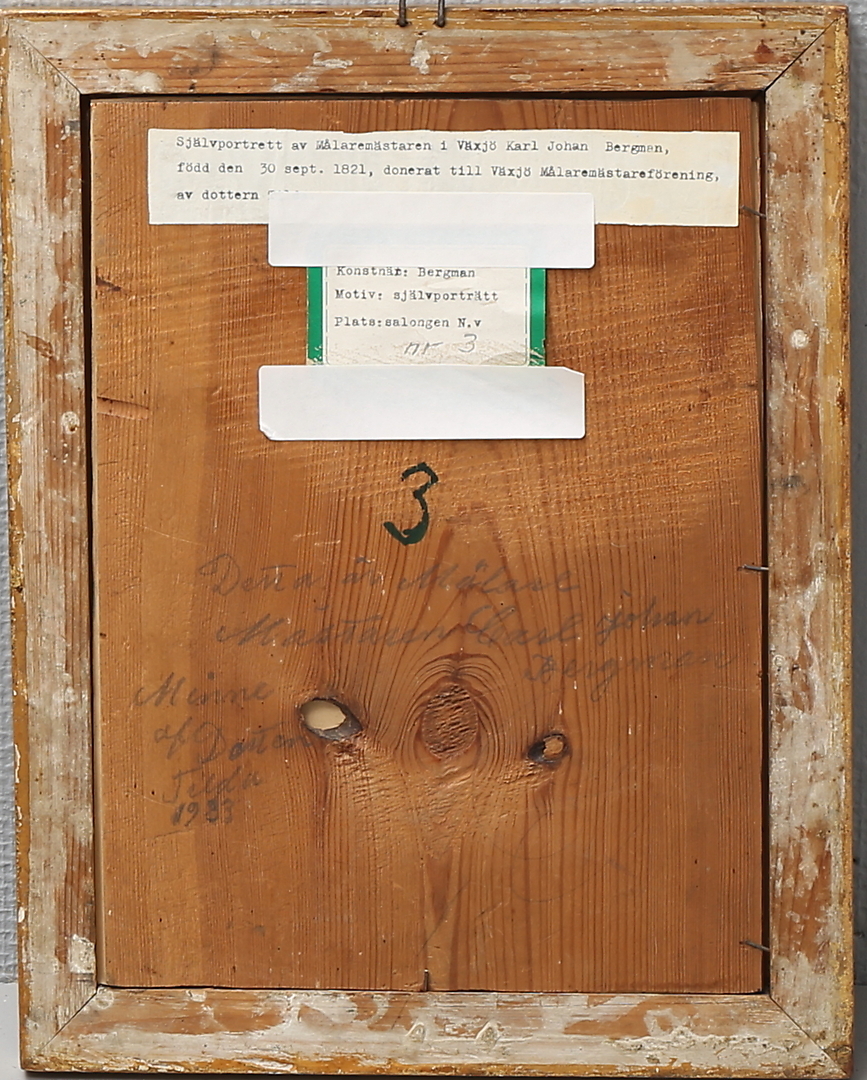 Självportrett av Målaremästaren i Växjö Karl Johan Bergman,
född den 30 sept. 1821, donerat till Växjö Målaremästareförening,
av dottern
Konstnär: Bergman
Motiv: självporträtt
Plats:salongen N.v
nr 3
3
Detta är Målare
Johan
Bergman
Minne
af
Tilda
1933